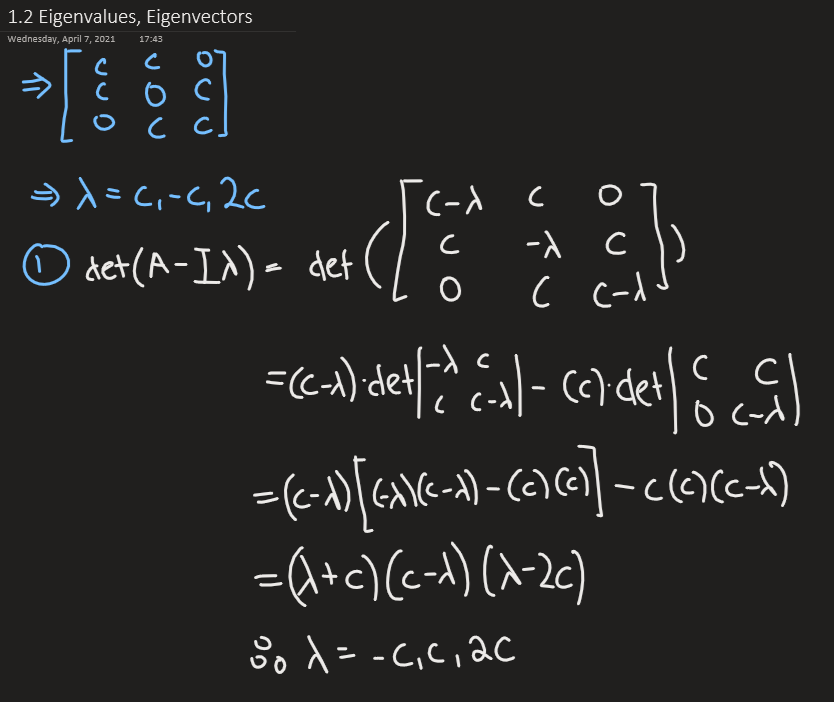 1.2 Eigenvalues, Eigenvectors
Wednesday, April 7, 2021 17:43
⇒ [c c 0
c 0 c
0 c c]
⇒ λ = c, -c, 2c
① det(A-Iλ) = det([c-λ c 0
c -λ c
0 c c-λ])
=(c-λ)·det|-λ c
c c-λ| - (c)·det|c c
0 c-λ|
=(c-λ)[(-λ)(c-λ)-(c)(c)] - c(c)(c-λ)
=(λ+c)(c-λ)(λ-2c)
∴ λ = -c, c, 2c